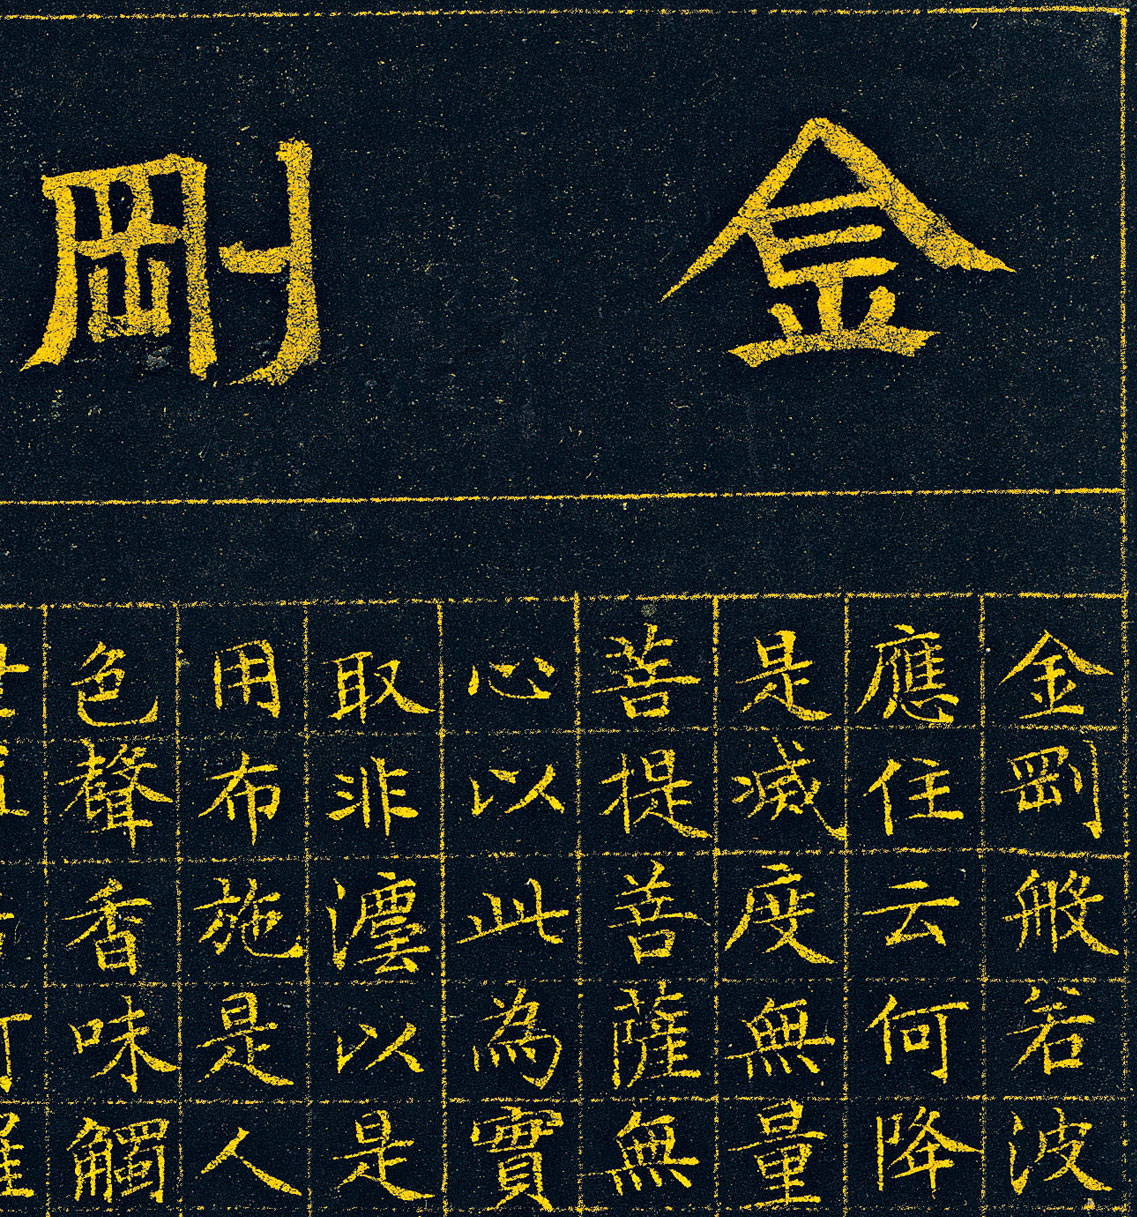 金剛
金剛般若波
應住云何降
是滅度無量
菩提菩薩無
心以此為實
取非灋以是
用布施是人
色聲香味觸